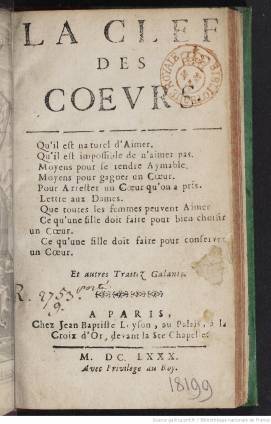 LA CLEF
DES
COEVRS
Qu'il est naturel d'Aimer.
Qu'il est impossible de n'aimer pas.
Moyens pour se rendre Aymable.
Moyens pour gagner un Cœur.
Pour Arrester un Cœur qu'on a pris.
Lettre aux Dames.
Que toutes les femmes peuvent Aimer
Ce qu'une fille doit faire pour bien choisir
un Cœur.
Ce qu'une fille doit faire pour conserver
un Cœur.
Et autres Traitez Galants.
R. 2753.
9.
A PARIS,
Chez Jean Baptiste Loyson, au Palais, à la
Croix d'Or, devant la Ste Chapelle
M. DC. LXXX.
Avec Privilege du Roy.
18199
Source gallica.bnf.fr / Bibliothèque nationale de France